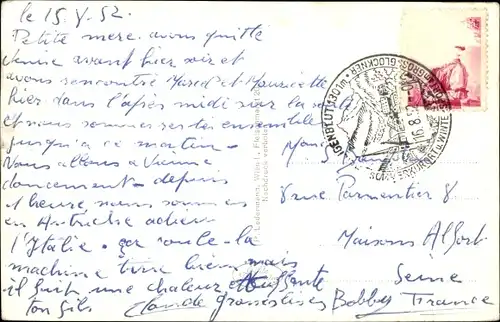 le 15.8.52.
Petite mère avons quitté
Venise avant hier soir et
avons rencontré Marcel et Mauricette
hier dans l'après midi sur la route
et nous sommes restés ensemble
jusqu'à ce matin -
Nous allons à Vienne
doucement - depuis
1 heure nous sommes
en Autriche adieu
l'Italie - ça roule - la
machine tire bien mais
il fait une chaleur étouffante
ton fils Claude grosses bises Bobby
HEILIGENBLUT 1301 m
GROSSGLOCKNER
SOMMERKURORT u. WINTER
16.8.52
Ledermann, Wien I.
8 rue Parmentier 8
Maisons Alfort
Seine
France